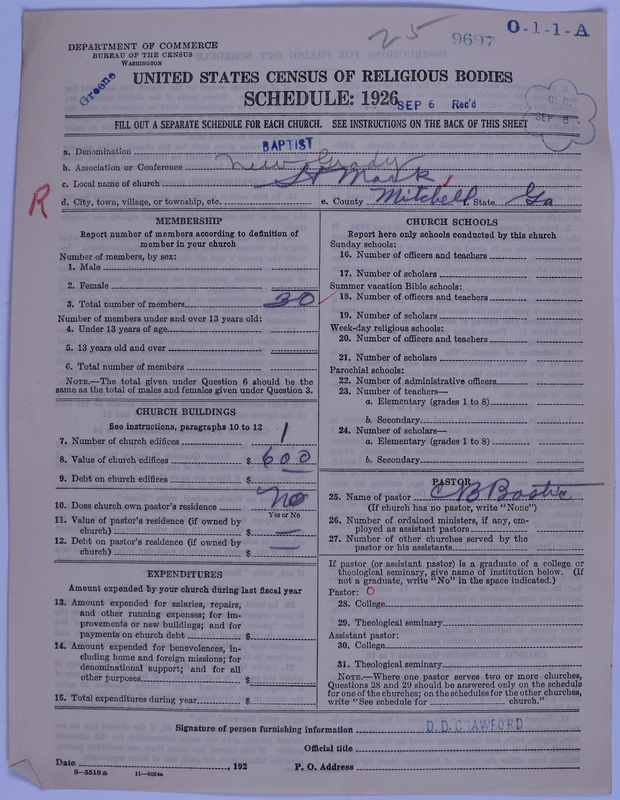 25 9697 O-1-1-A
DEPARTMENT OF COMMERCE
BUREAU OF THE CENSUS
WASHINGTON
Greene
UNITED STATES CENSUS OF RELIGIOUS BODIES
SCHEDULE: 1926
SEP 6 Rec'd
SEP 6
FILL OUT A SEPARATE SCHEDULE FOR EACH CHURCH. SEE INSTRUCTIONS ON THE BACK OF THIS SHEET
a. Denomination BAPTIST
b. Association or Conference New Grady
c. Local name of church St Mark
R
d. City, town, village, or township, etc. e. County Mitchell State Ga
MEMBERSHIP
Report number of members according to definition of
member in your church
Number of members, by sex:
1. Male
2. Female
3. Total number of members 30
Number of members under and over 13 years old:
4. Under 13 years of age
5. 13 years old and over
6. Total number of members
NOTE.—The total given under Question 6 should be the
same as the total of males and females given under Question 3.
CHURCH BUILDINGS
See instructions, paragraphs 10 to 12
7. Number of church edifices 1
8. Value of church edifices $ 600
9. Debt on church edifices $
10. Does church own pastor's residence no
Yes or No
11. Value of pastor's residence (if owned by
church) $ —
12. Debt on pastor's residence (if owned by
church) $ —
EXPENDITURES
Amount expended by your church during last fiscal year
13. Amount expended for salaries, repairs,
and other running expenses; for im-
provements or new buildings; and for
payments on church debt $
14. Amount expended for benevolences, in-
cluding home and foreign missions; for
denominational support; and for all
other purposes $
15. Total expenditures during year $
CHURCH SCHOOLS
Report here only schools conducted by this church
Sunday schools:
16. Number of officers and teachers
17. Number of scholars
Summer vacation Bible schools:
18. Number of officers and teachers
19. Number of scholars
Week-day religious schools:
20. Number of officers and teachers
21. Number of scholars
Parochial schools:
22. Number of administrative officers
23. Number of teachers—
a. Elementary (grades 1 to 8)
b. Secondary
24. Number of scholars—
a. Elementary (grades 1 to 8)
b. Secondary
PASTOR
25. Name of pastor
(If church has no pastor, write "None")
26. Number of ordained ministers, if any, em-
ployed as assistant pastors
27. Number of other churches served by the
pastor or his assistants
If pastor (or assistant pastor) is a graduate of a college or
theological seminary, give name of institution below. (If
not a graduate, write "No" in the space indicated.)
Pastor: O
28. College
29. Theological seminary
Assistant pastor:
30. College
31. Theological seminary
NOTE.—Where one pastor serves two or more churches,
Questions 28 and 29 should be answered only on the schedule
for one of the churches; on the schedules for the other churches,
write "See schedule for church."
Signature of person furnishing information D. D. CRAWFORD
Official title
Date , 192 P. O. Address
8—5518 a 11—9054a